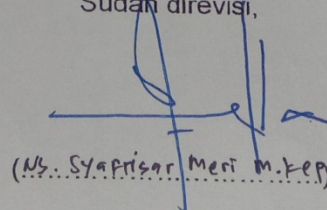 Sudah direvisi,
(Ns. Syafrisar Meri M.Kep)